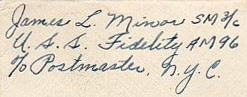 James L. Minor SM 3/c
U.S.S. Fidelity AM 96
c/o Postmaster, N.Y.C.